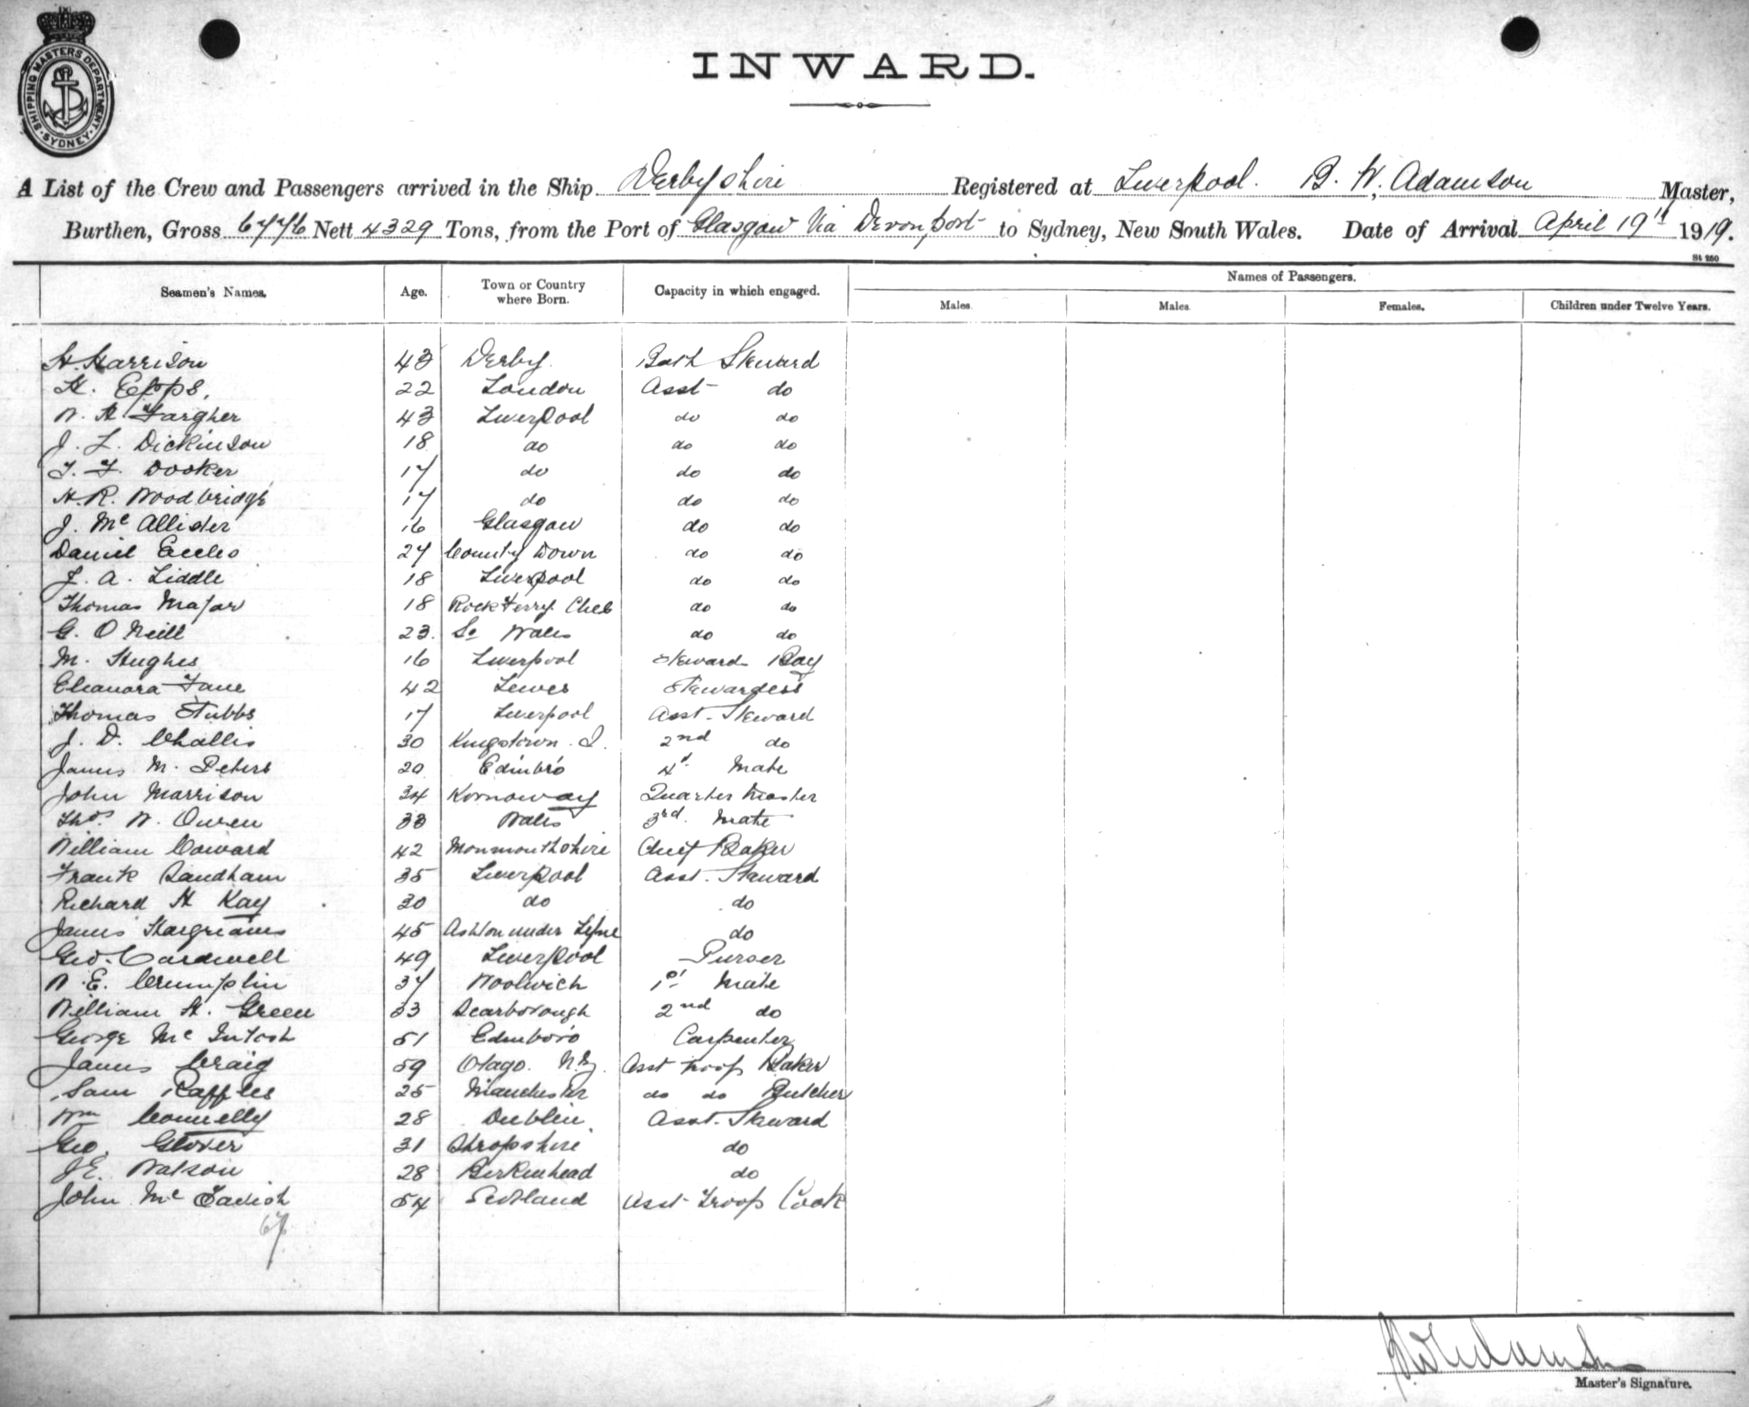 SHIPPING MASTERS DEPARTMENT. SYDNEY
INWARD.
A List of the Crew and Passengers arrived in the Ship Derbyshire Registered at Liverpool. B. W. Adamson, Master,
Burthen, Gross 6776 Nett 4329 Tons, from the Port of Glasgow Via Devonport to Sydney, New South Wales. Date of Arrival April 19th 1919.
St 250
Seamen's Names. Age. Town or Country where Born. Capacity in which engaged. Names of Passengers.
Males. Males. Females. Children under Twelve Years.
H. Harrison 43 Derby Bath Steward
H. Epps. 22 London Asst do
W. H. Fargher 43 Liverpool do do
J. L. Dickinson 18 do do do
T. F. Dooker 17 do do do
H. R. Woodbridge 17 do do do
J. Mc Allister 16 Glasgow do do
Daniel Eccles 27 County Down do do
J. A. Liddle 18 Liverpool do do
Thomas Major 18 Rock Ferry Ches do do
G. O Neill 23. So Wales do do
M. Hughes 16 Liverpool Steward Boy
Eleanora Fane 42 Lewes Stewardess
Thomas Stubbs 17 Liverpool Asst. Steward
J. D. Challis 30 Kingstown. I. 2nd do
James M. Peters 20 Edinbro 4th Mate
John Morrison 34 Quarter Master
Thos. W. Owen 33 Wales 3rd. Mate
William Coward 42 Monmouthshire Chief Baker
Frank Sandham 35 Liverpool Asst. Steward
Richard H Kay 30 do do
James Hargreaves 45 Ashton under Lyne do
Geo. Cardwell 49 Liverpool Purser
W. E. Crumplin 37 Woolwich 1st Mate
William H. Green 33 Scarborough 2nd do
George Mc Intosh 51 Edinboro Carpenter
James Craig 59 Otago. N.Z. Asst Troop Baker
Sam Raffles 25 Manchester do do Butcher
Wm Connelly 28 Dublin. Asst. Steward
Geo. Glover 31 Shropshire do
J. E. Watson 28 Birkenhead do
John Mc Tavish 54 Scotland Asst Troop Cook
67
B W Adamson
Master's Signature.